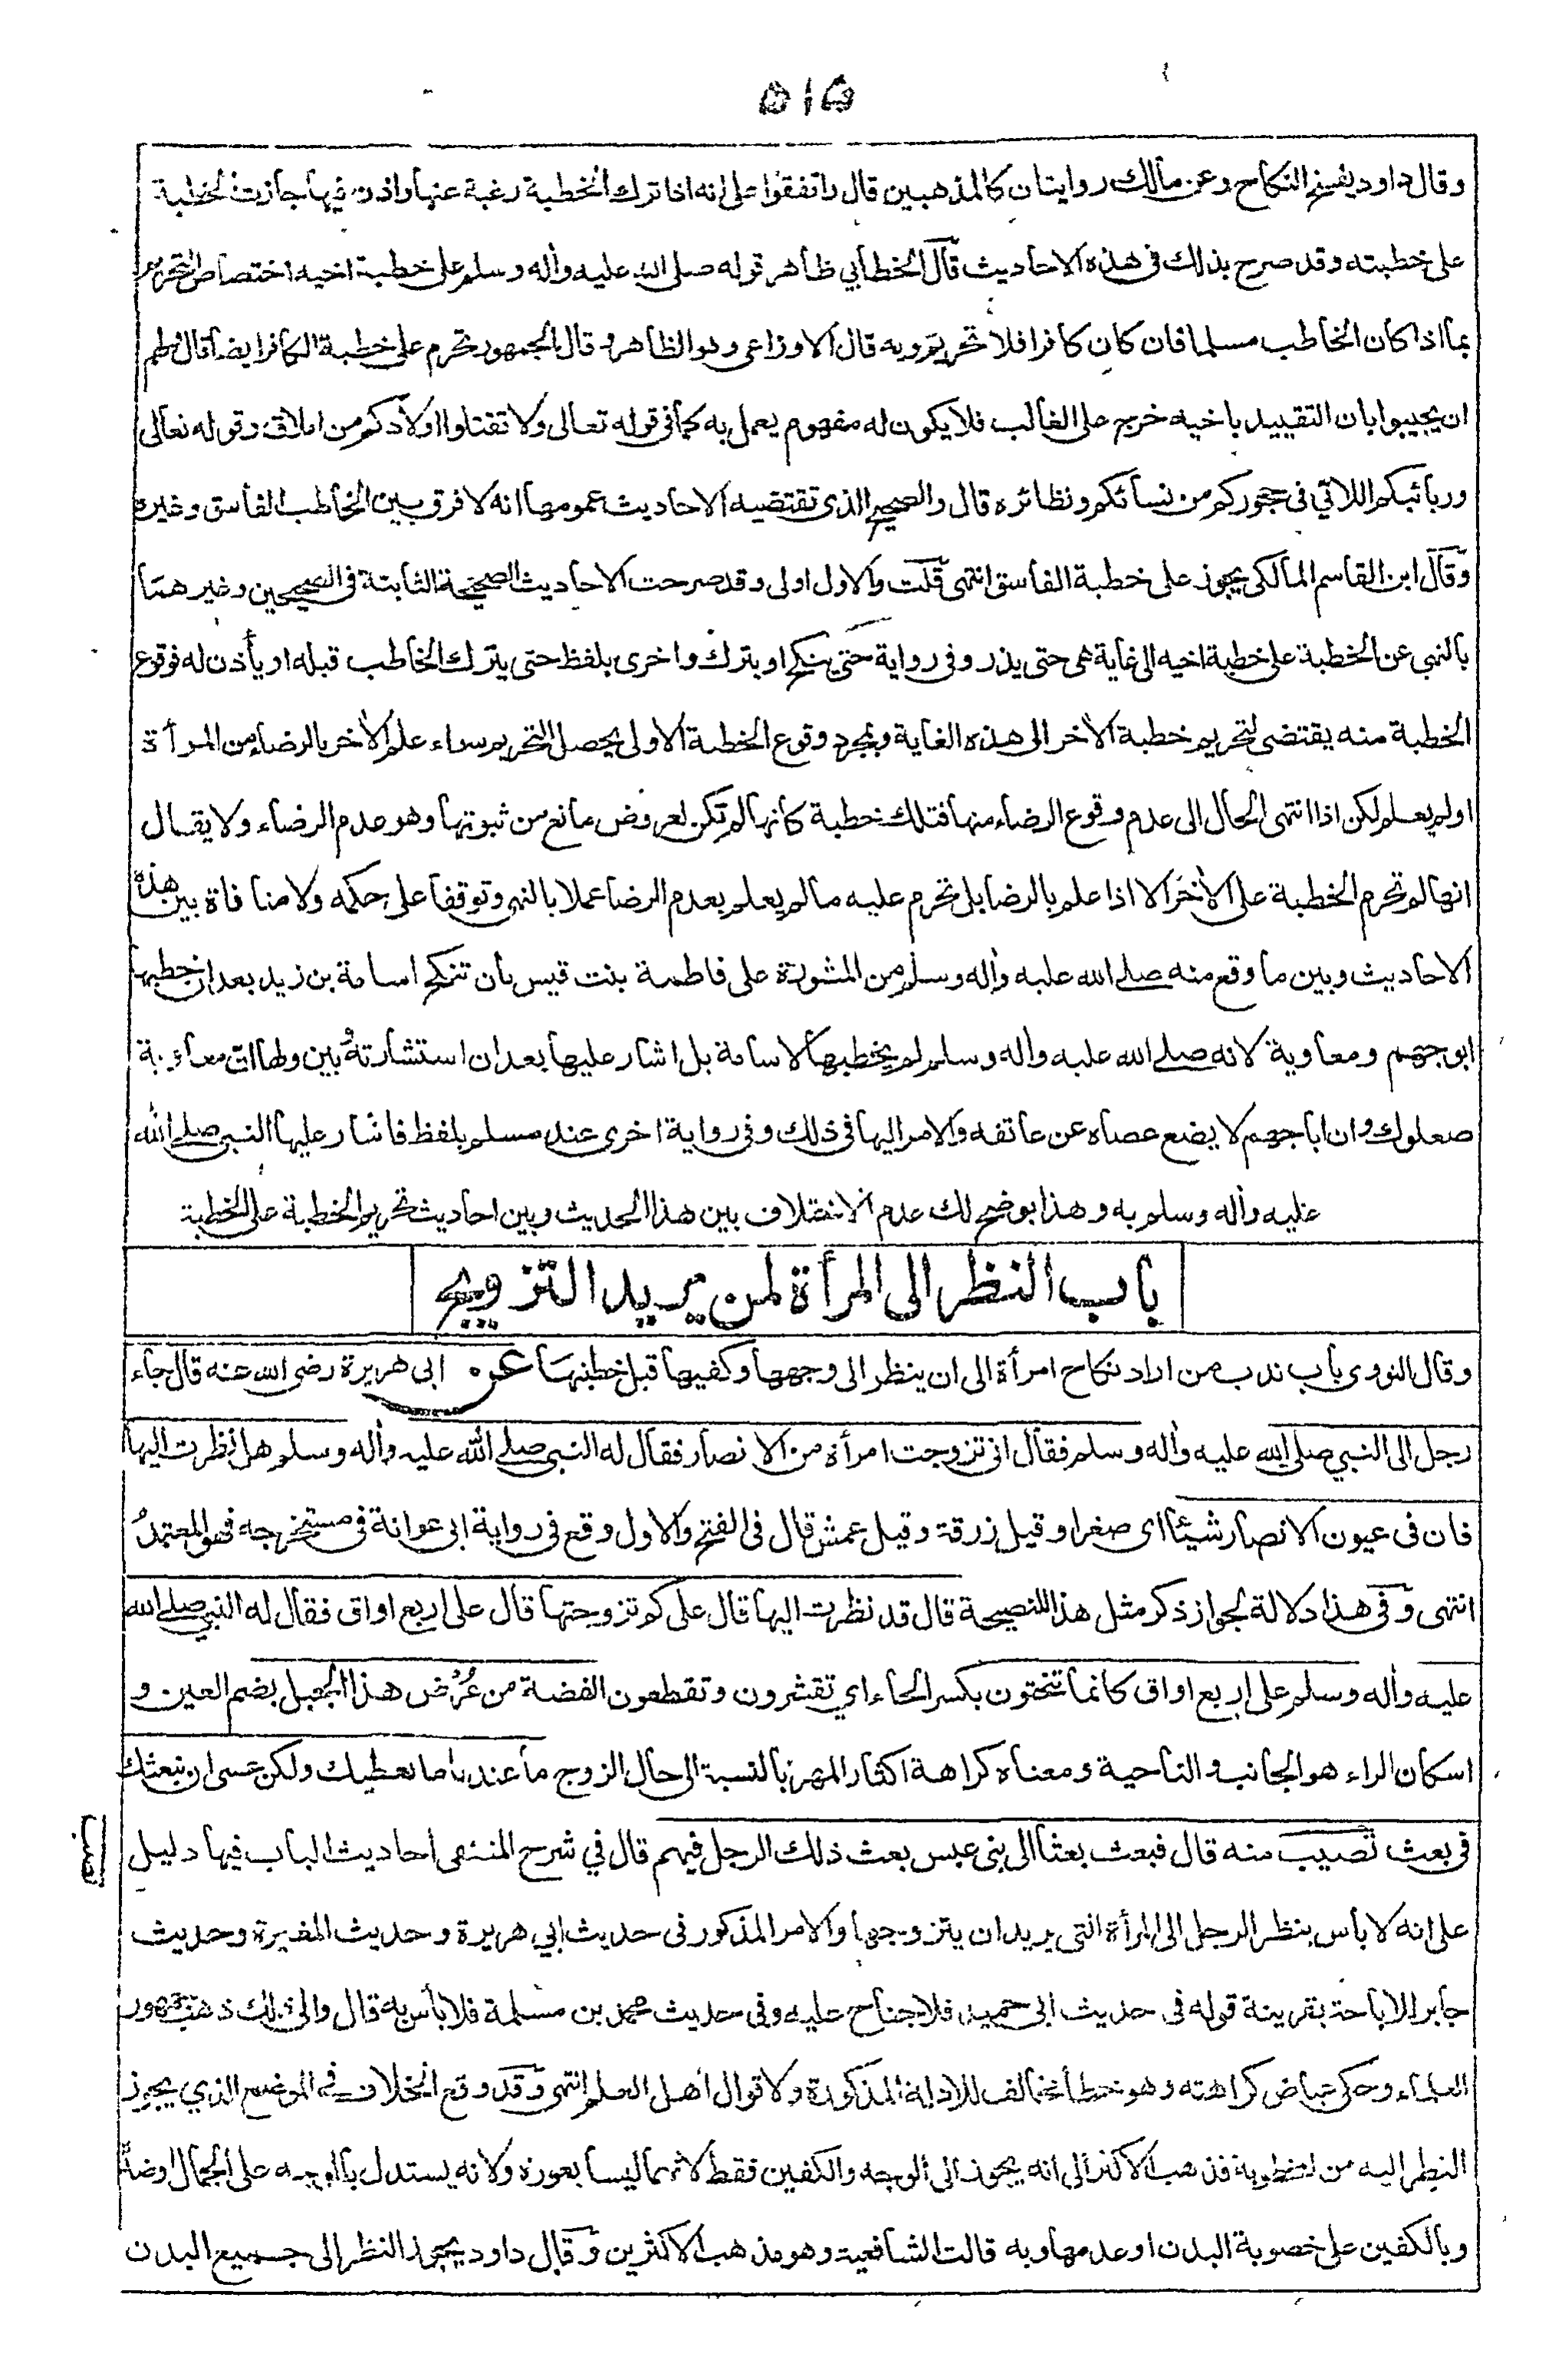 ٥١٥
وقال داود يفسخ النكاح وعن مالك روايتان كالمذهبين قال واتفقوا على انه اذا ترك الخطبة رغبة عنها واذن فيها جازت الخطبة
على خطبته وقد صرح بذلك فى هذه الاحاديث قال الخطابي ظاهر قوله صلى الله عليه وأله وسلم على خطبة اخيه اختصاص التحريم
بما اذا كان الخاطب مسلما فان كان كافرا فلا تحريم وبه قال الاوزاعى وهو الظاهر وقال الجمهور تحرم على خطبة الكافر ايضا قال ولهم
ان يجيبوا بان التقييد باخيه خرج على الغالب فلا يكون له مفهوم يعمل به كما فى قوله تعالى ولا تقتلوا اولادكم من املاق وقوله تعالى
وربائبكم اللاتي فى حجوركم من نسائكم ونظائره قال والصحيح الذى تقتضيه الاحاديث عمومها انه لا فرق بين الخاطب الفاسق وغيره
وقال ابن القاسم المالكى يجوز على خطبة الفاسق انتهى قلت والاول اولى وقد صرحت الاحاديث الصحيحة الثابتة فى الصحيحين وغيرهما
بالنهى عن الخطبة على خطبة اخيه الى غاية هى حتى يذر وفى رواية حتى ينكح او يترك واخرى بلفظ حتى يترك الخاطب قبله او يأذن له فوقوع
الخطبة منه يقتضى لتحريم خطبة الأخر الى هذه الغاية وبمجرد وقوع الخطبة الاولى يحصل التحريم سواء علم الأخر بالرضاء من المرأة
اولم يعلم لكن اذا انتهى الحال الى عدم وقوع الرضاء منها فتلك خطبة كانها لم تكن لعروض مانع من ثبوتها وهو عدم الرضاء ولا يقال
انها لم تحرم الخطبة على الأخر الا اذا علم بالرضا بل تحرم عليه مالم يعلم بعدم الرضا عملا بالنهى وتوقفا على حكمه ولا منافاة بين هذه
الاحاديث وبين ما وقع منه صلى الله عليه وأله وسلم من المشورة على فاطمة بنت قيس بأن تنكح اسامة بن زيد بعد ان خطبها
ابوجهم ومعاوية لانه صلى الله عليه واله وسلم لم يخطبها لاسامة بل اشار عليها بعد ان استشارته وبين ولها ان معاوية
صعلوك وان اباجهم لا يضع عصاه عن عاتقه والامر اليها فى ذلك وفى رواية اخرى عند مسلم بلفظ فاشار عليها النبى صلى الله
عليه وأله وسلم به وهذا يوضح لك عدم الاختلاف بين هذا الحديث وبين احاديث تحريم الخطبة على الخطبة
باب النظر الى المرأة لمن يريد التزويج
وقال النووى باب ندب من اراد نكاح امرأة الى ان ينظر الى وجهها وكفيها قبل خطبتها عن ابى هريرة رضى الله عنه قال جاء
رجل الى النبي صلى الله عليه وأله وسلم فقال انى تزوجت امرأة من الانصار فقال له النبى صلى الله عليه وأله وسلم هل نظرت اليها
فان فى عيون الانصار شيئا اى صغرا وقيل زرقة وقيل عمش قال فى الفتح والاول وقع فى رواية ابى عوانة فى مستخرجه فهو المعتمد
انتهى وفى هذا دلالة لجواز ذكر مثل هذا للنصيحة قال قد نظرت اليها قال على كم تزوجتها قال على اربع اواق فقال له النبى صلى الله
عليه وأله وسلم على اربع اواق كانما تنحتون بكسر الحاء اي تقشرون وتقطعون الفضة من عرض هذا الجبل بضم العين و
اسكان الراء هو الجانب والناحية ومعناه كراهة اكثار المهر بالنسبة الى حال الزوج ما عندنا ما نعطيك ولكن عسى ان نبعثك
فى بعث تصيب منه قال فبعث بعثا الى بنى عبس بعث ذلك الرجل فيهم قال في شرح المنتقى أحاديث الباب فيها دليل
على انه لا بأس بنظر الرجل الى المرأة التى يريد ان يتزوجها والامر المذكور فى حديث ابي هريرة وحديث المغيرة وحديث
جابر للاباحة بقرينة قوله فى حديث ابى حميد فلا جناح عليه وفى حديث محمد بن مسلمة فلا بأس به قال والى ذلك ذهب جمهور
العلماء وحكى عياض كراهته وهو خطأ مخالف للادلة المذكورة ولاقوال أهل العلم انتهى وقد وقع الخلاف فى الموضع الذي يجوز
النظر اليه من المخطوبة فذهب الاكثر الى انه يجوز الى الوجه والكفين فقط لانهما ليسا بعورة ولانه يستدل بالوجه على الجمال اوضده
وبالكفين على خصوبة البدن او عدمها وبه قالت الشافعية وهو مذهب الاكثرين وقال داود يجوز النظر الى جميع البدن